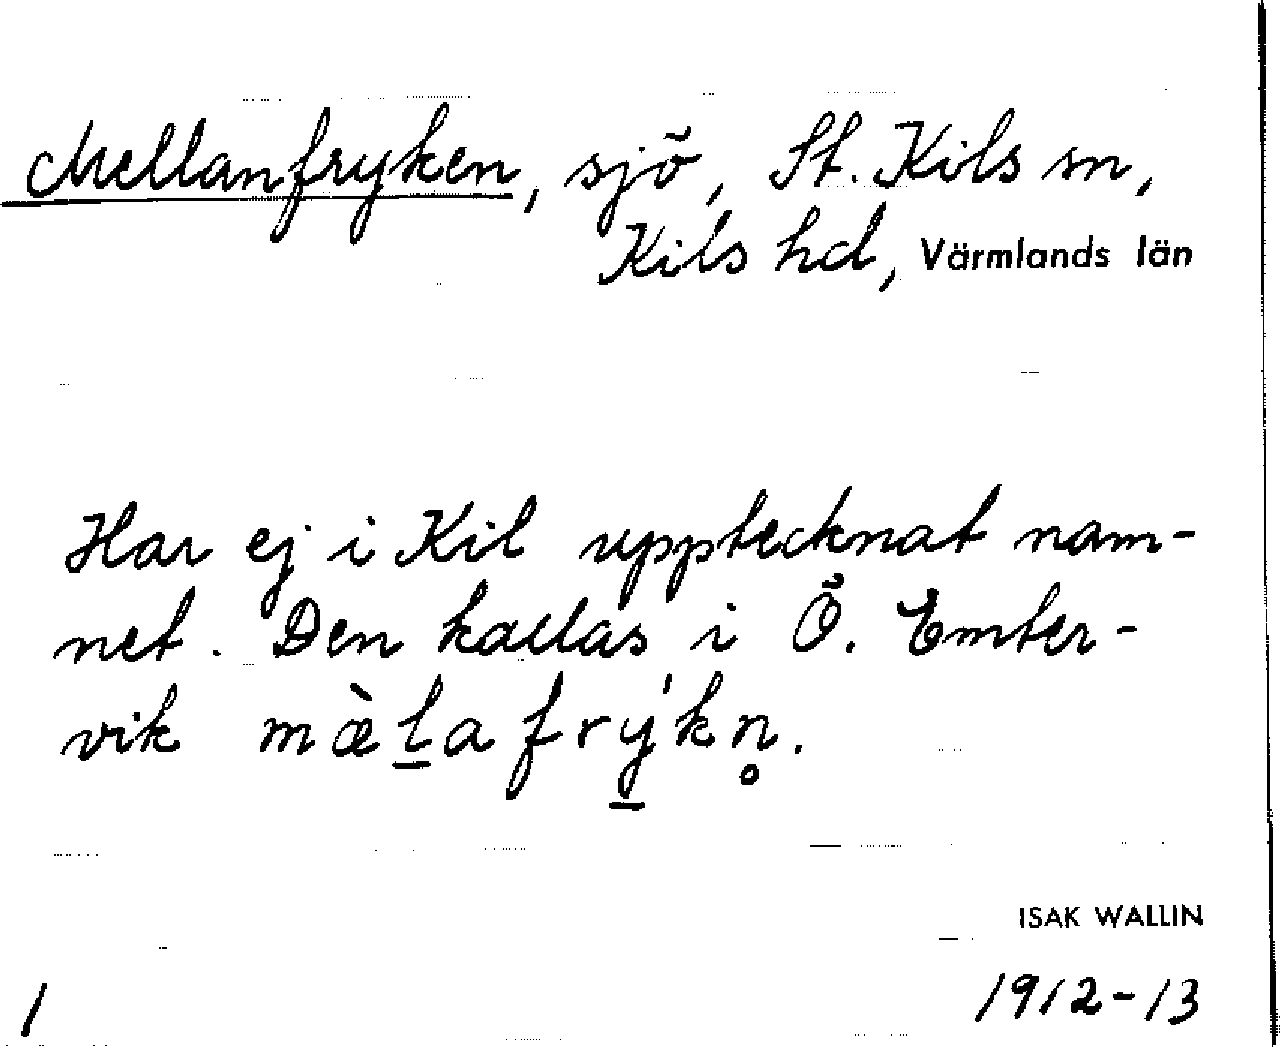 Mellanfryken, sjö, St. Kils sn,
Kils hd, Värmlands län
Har ej i Kil upptecknat nam-
net. Den kallas i Ö. Emter-
vik mæ̀l̠afrý̠kn̥.
ISAK WALLIN
1912-13
1